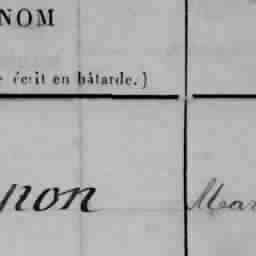 NOM
e écrit en bâtarde.)
non Mar